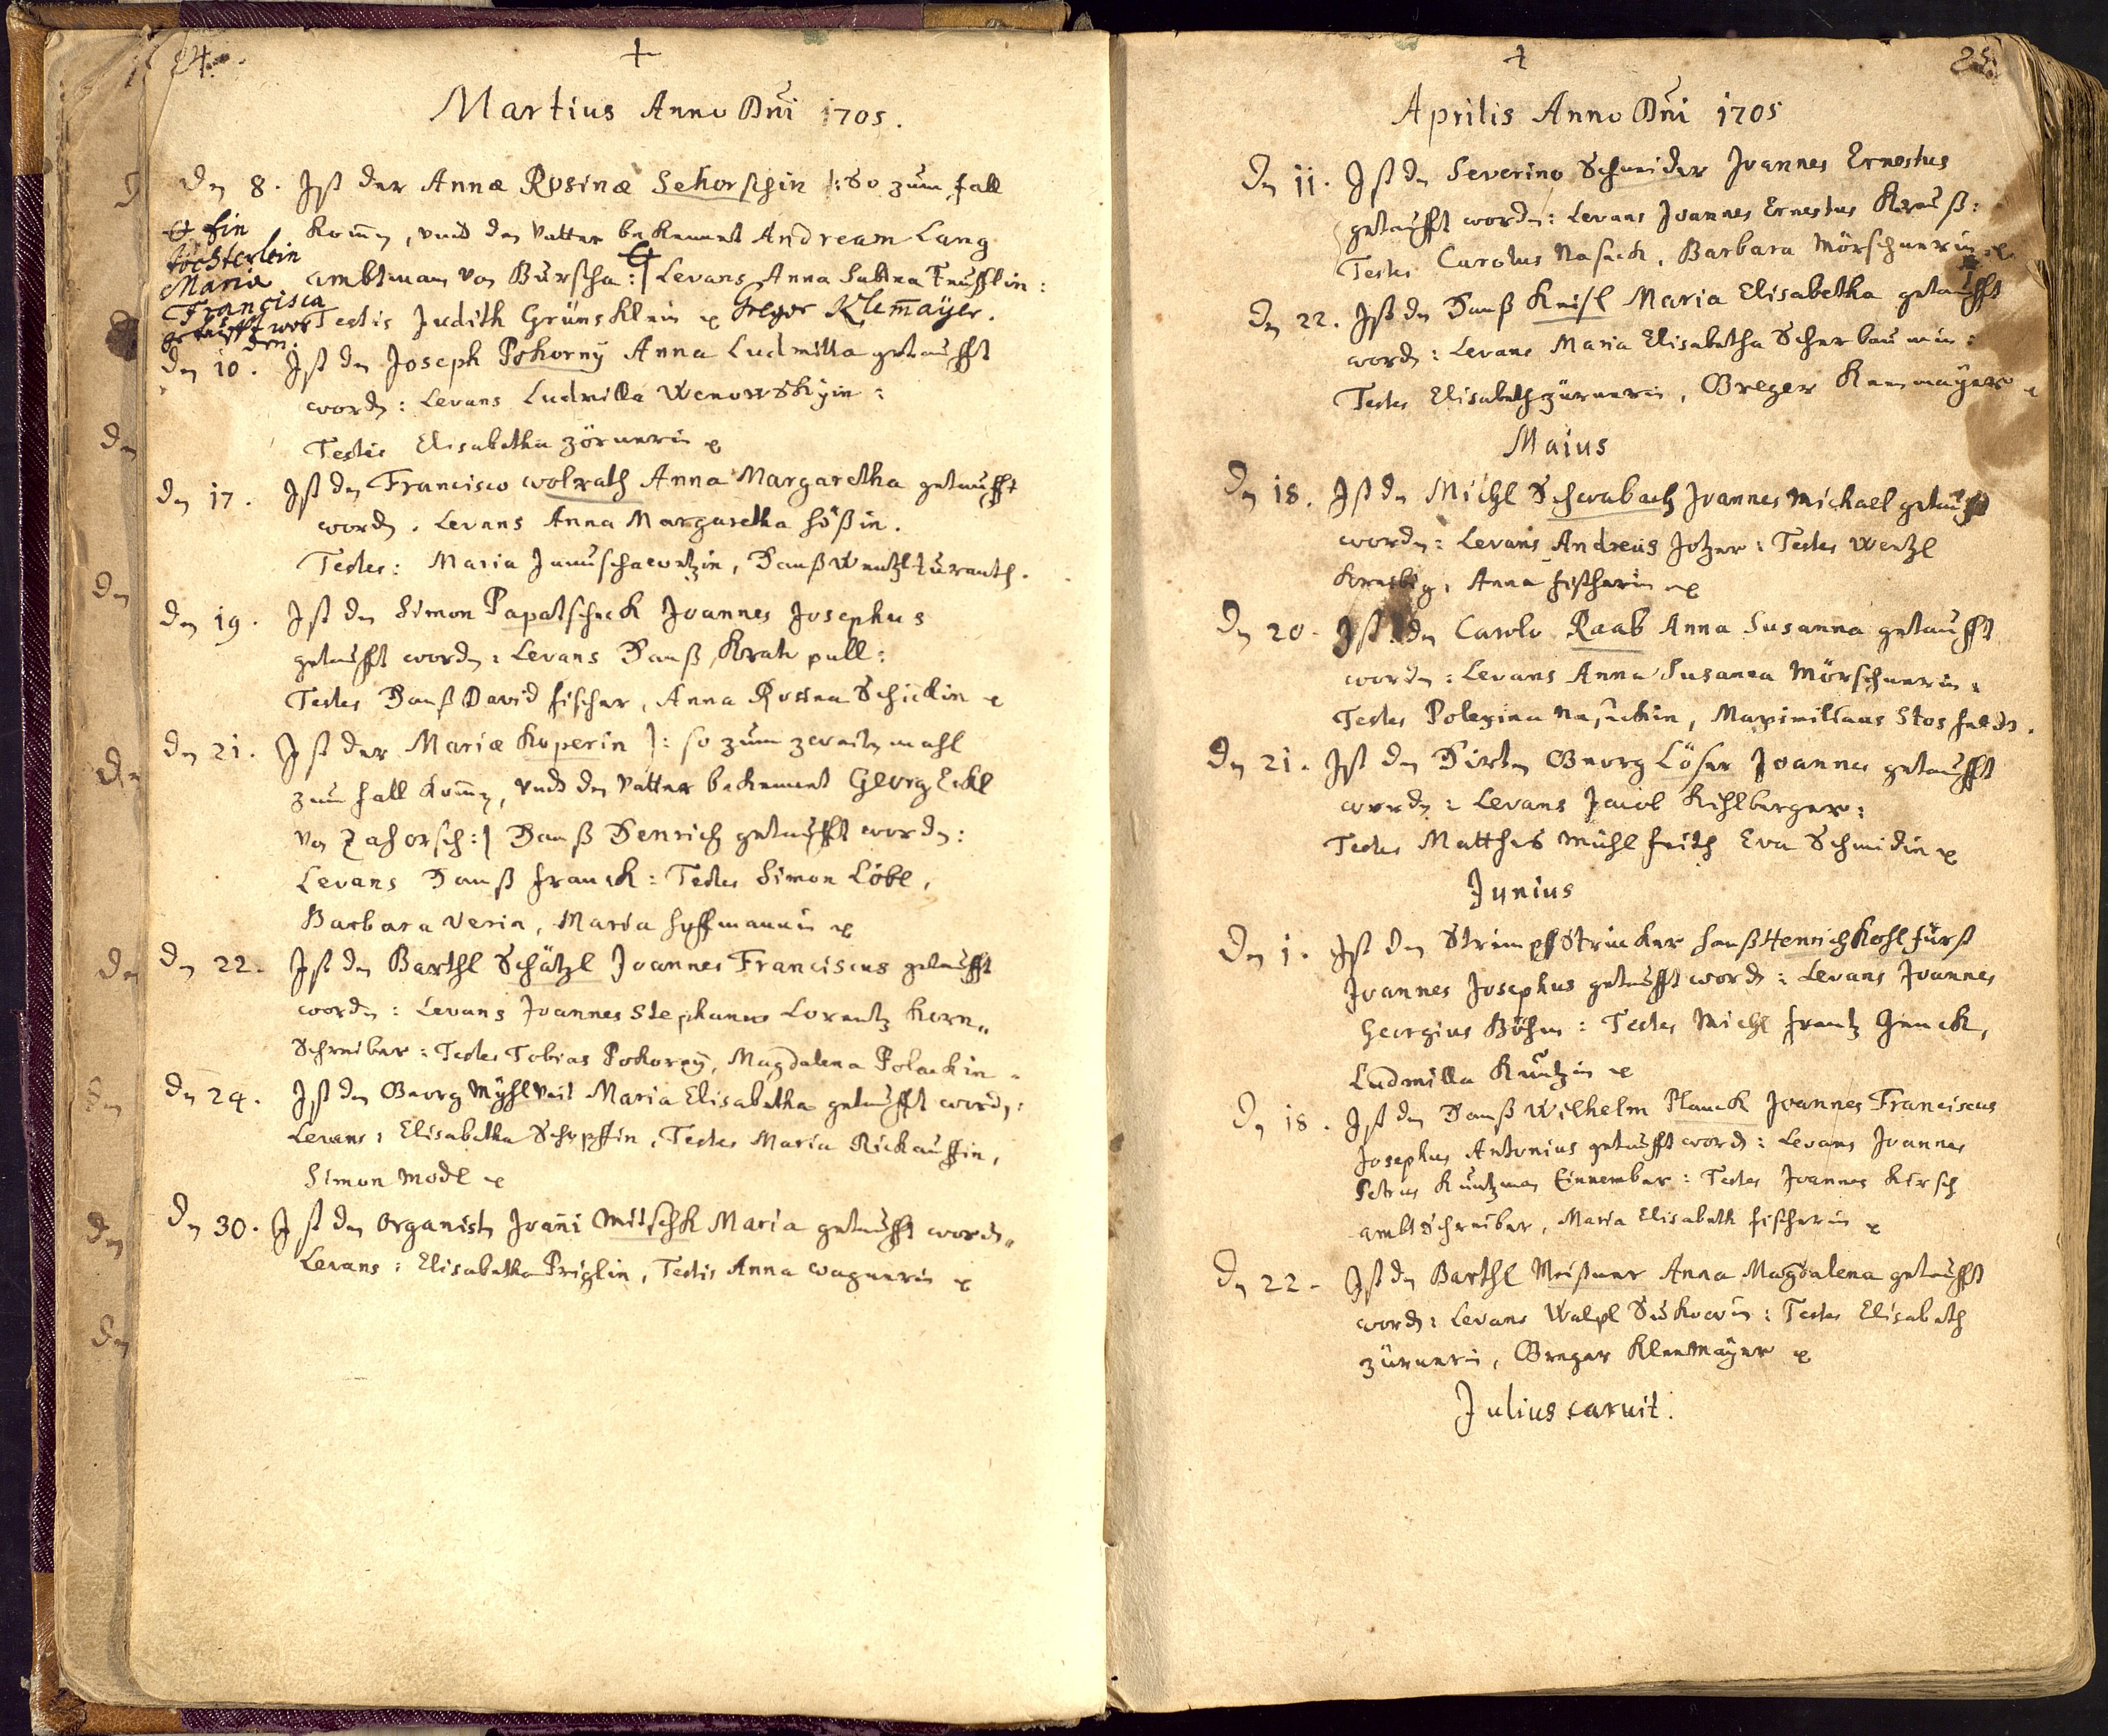 24.
+
Martius Anno Dni 1705.
Den 8. Ist der Annæ Rosinæ Schorschin |: so zum fall
komen, vnd den Vatter bekennet Andream Lang
ambtman von Burscha :| Levans Anna Sabina Teufflin:
Testis Judith Grünsklein Gregor Klemayer.
Ein
töchterlein
Maria
Francisca
getaufft wor
den.
Den 10. Ist den Joseph Pokorny Anna Ludmilla getaufft
worden: Levans Ludmilla Wenowskyin:
Testis Elisabetha Zörnerin
Den 17. Ist den Francisco Wolrath Anna Margaretha getaufft
worden. Levans Anna Margaretha Hößin.
Testes: Maria Januschawetzin, Hanß Wentzl
Den 19. Ist den Simon Papatscheck Joannes Josephus
getaufft worden: Levans Hanß Kratzpull:
Testes Hanß David Fischer, Anna Rosina Schicklin
Den 21. Ist der Mariæ Koperin |: so zum zweiten mahl
zum fall komen, vnd den Vatter bekennet Georg Eckl
von Zahorsch :| Hanß Henrich getaufft worden:
Levans Hanß Franck: Testes Simon Löbl,
Barbara Verin, Maria Hoffmannin
Den 22. Ist den Barthl Schätzl Joannes Franciscus getaufft
worden: Levans Joannes Stephanus Lorentz Korn„
Schreiber: Testes Tobias Pokorny, Magdalena Polackin
Den 24. Ist den Georg Mühlveit Maria Elisabetha getaufft worden:
Levans: Elisabetha Schopffin, Testes Maria Rickauffin,
Simon Modl
Den 30. Ist den Organisten Joañi Mitschk Maria getaufft worden.
Levans: Elisabetha Priglin, Testis Anna Wagnerin
25.
+
Aprilis Anno Dni 1705
Den 11. Ist den Severino Schneider Joannes Ernestus
getaufft worden: Levans Joannes Ernestus Krauß:
Testes Carolus Nasack, Barbara Mörschnerin
Den 22. Ist den Hanß Kneisl Maria Elisabetha getaufft
worden: Levans Maria Elisabetha Scherbaumin:
Testes Elisabeth Zürnerin, Greger Klemayer
Maius
Den 18. Ist den Michl Schwabach Joannes Michael getaufft
worden: Levans Andreas Jotzer: Testes Wentzl
Anna Fischerin
Den 20. Ist den Carolo Raab Anna Susanna getaufft
worden: Levans Anna Susanna Mörschnerin:
Testes Polexina Nasackin, Maximilianus Stosfeld.
Den 21. Ist den Hirten Georg Löser Joannes getaufft
worden: Levans Jacob Kihlberger:
Testes Matthes Mühlfeith Eva Schmidin
Junius
Den 1. Ist den Strimpfstricker Hanß Henrich Kohlfürst
Joannes Josephus getaufft worden: Levans Joannes
Georgius Böhm: Testes Michl Frantz Genck,
Ludmilla Kuntzin
Den 18. Ist den Hanß Wilhelm Planck Joannes Franciscus
Josephus Antonius getaufft worden: Levans Joannes
Petrus Kuntzman Einnember: Testes Joannes Kirsch
ambtschreiber, Maria Elisabeth Fischerin
Den 22. Ist den Barthl Meißner Anna Magdalena getaufft
worden: Levans Walpl Suskowin: Testes Elisabeth
Zürnerin, Greger Kleemayer
Julius caruit.